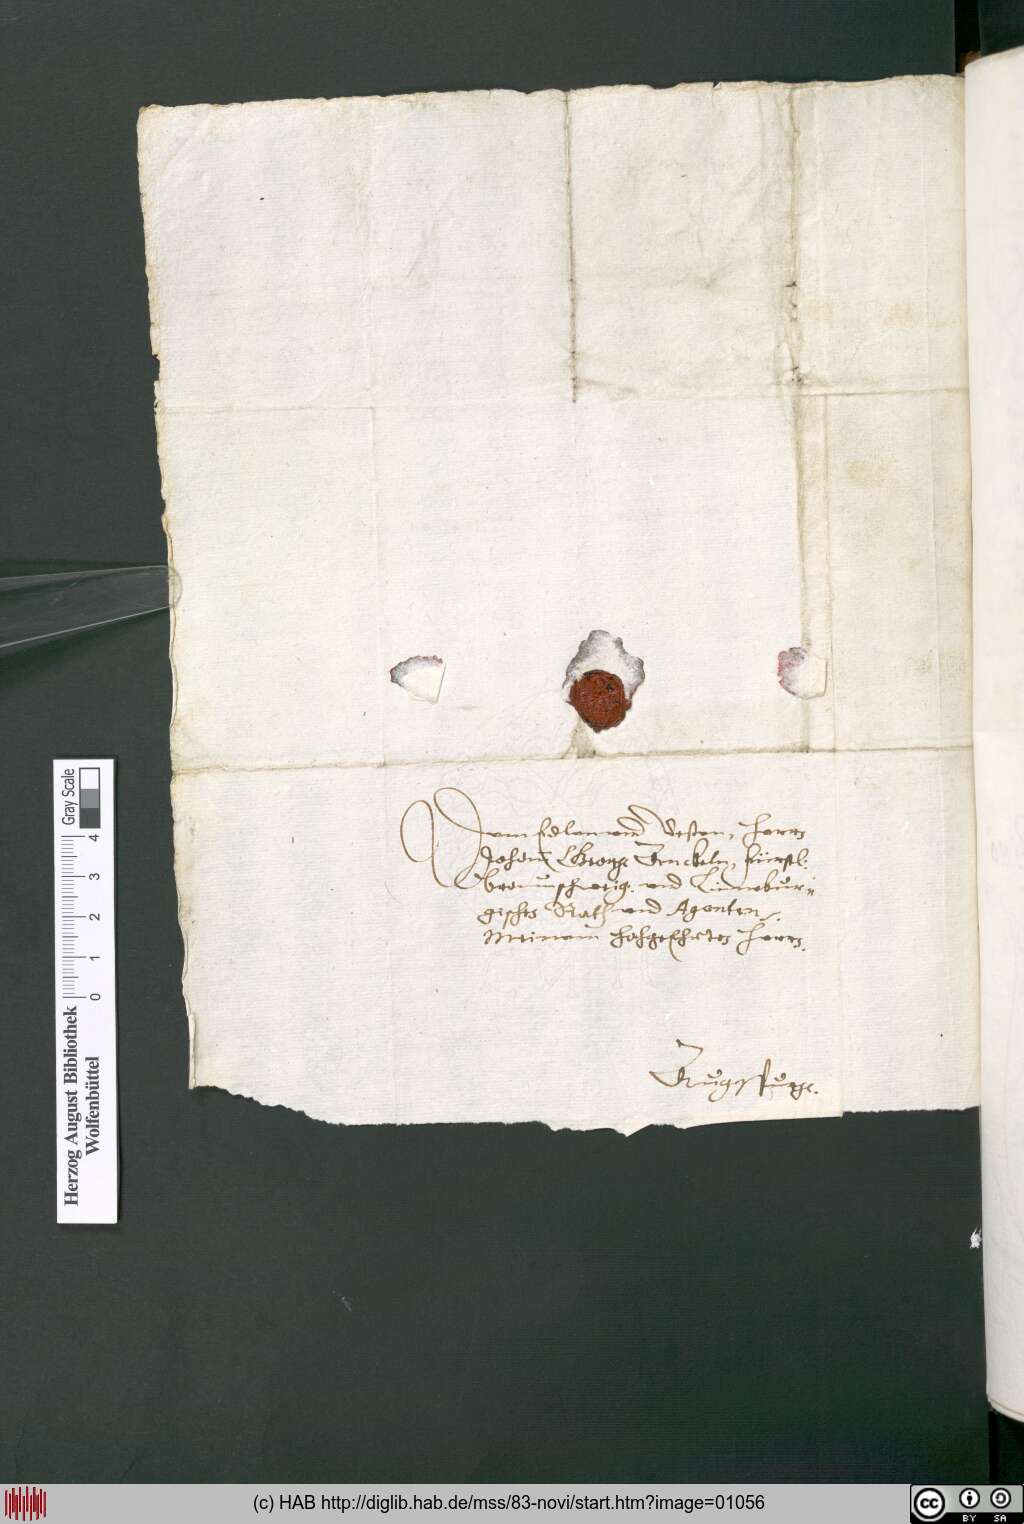 Dem Edlen und Vesten, Herrn
Johann George Fürstl:
Braunschweig. und Lüneburg=
gischer Rath und Agenten.
Meinem hochgeehrten Herrn.
Augspurg.
Herzog August Bibliothek
Wolfenbüttel
0 1 2 3 4
Gray Scale
(c) HAB http://diglib.hab.de/mss/83-novi/start.htm?image=01056
cc BY SA